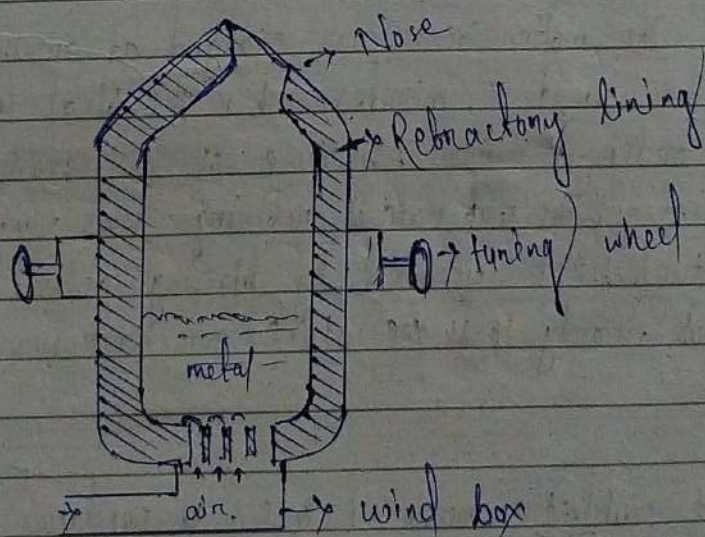 Nose
Rebractony lining
tuning wheel
metal
air.
wind box